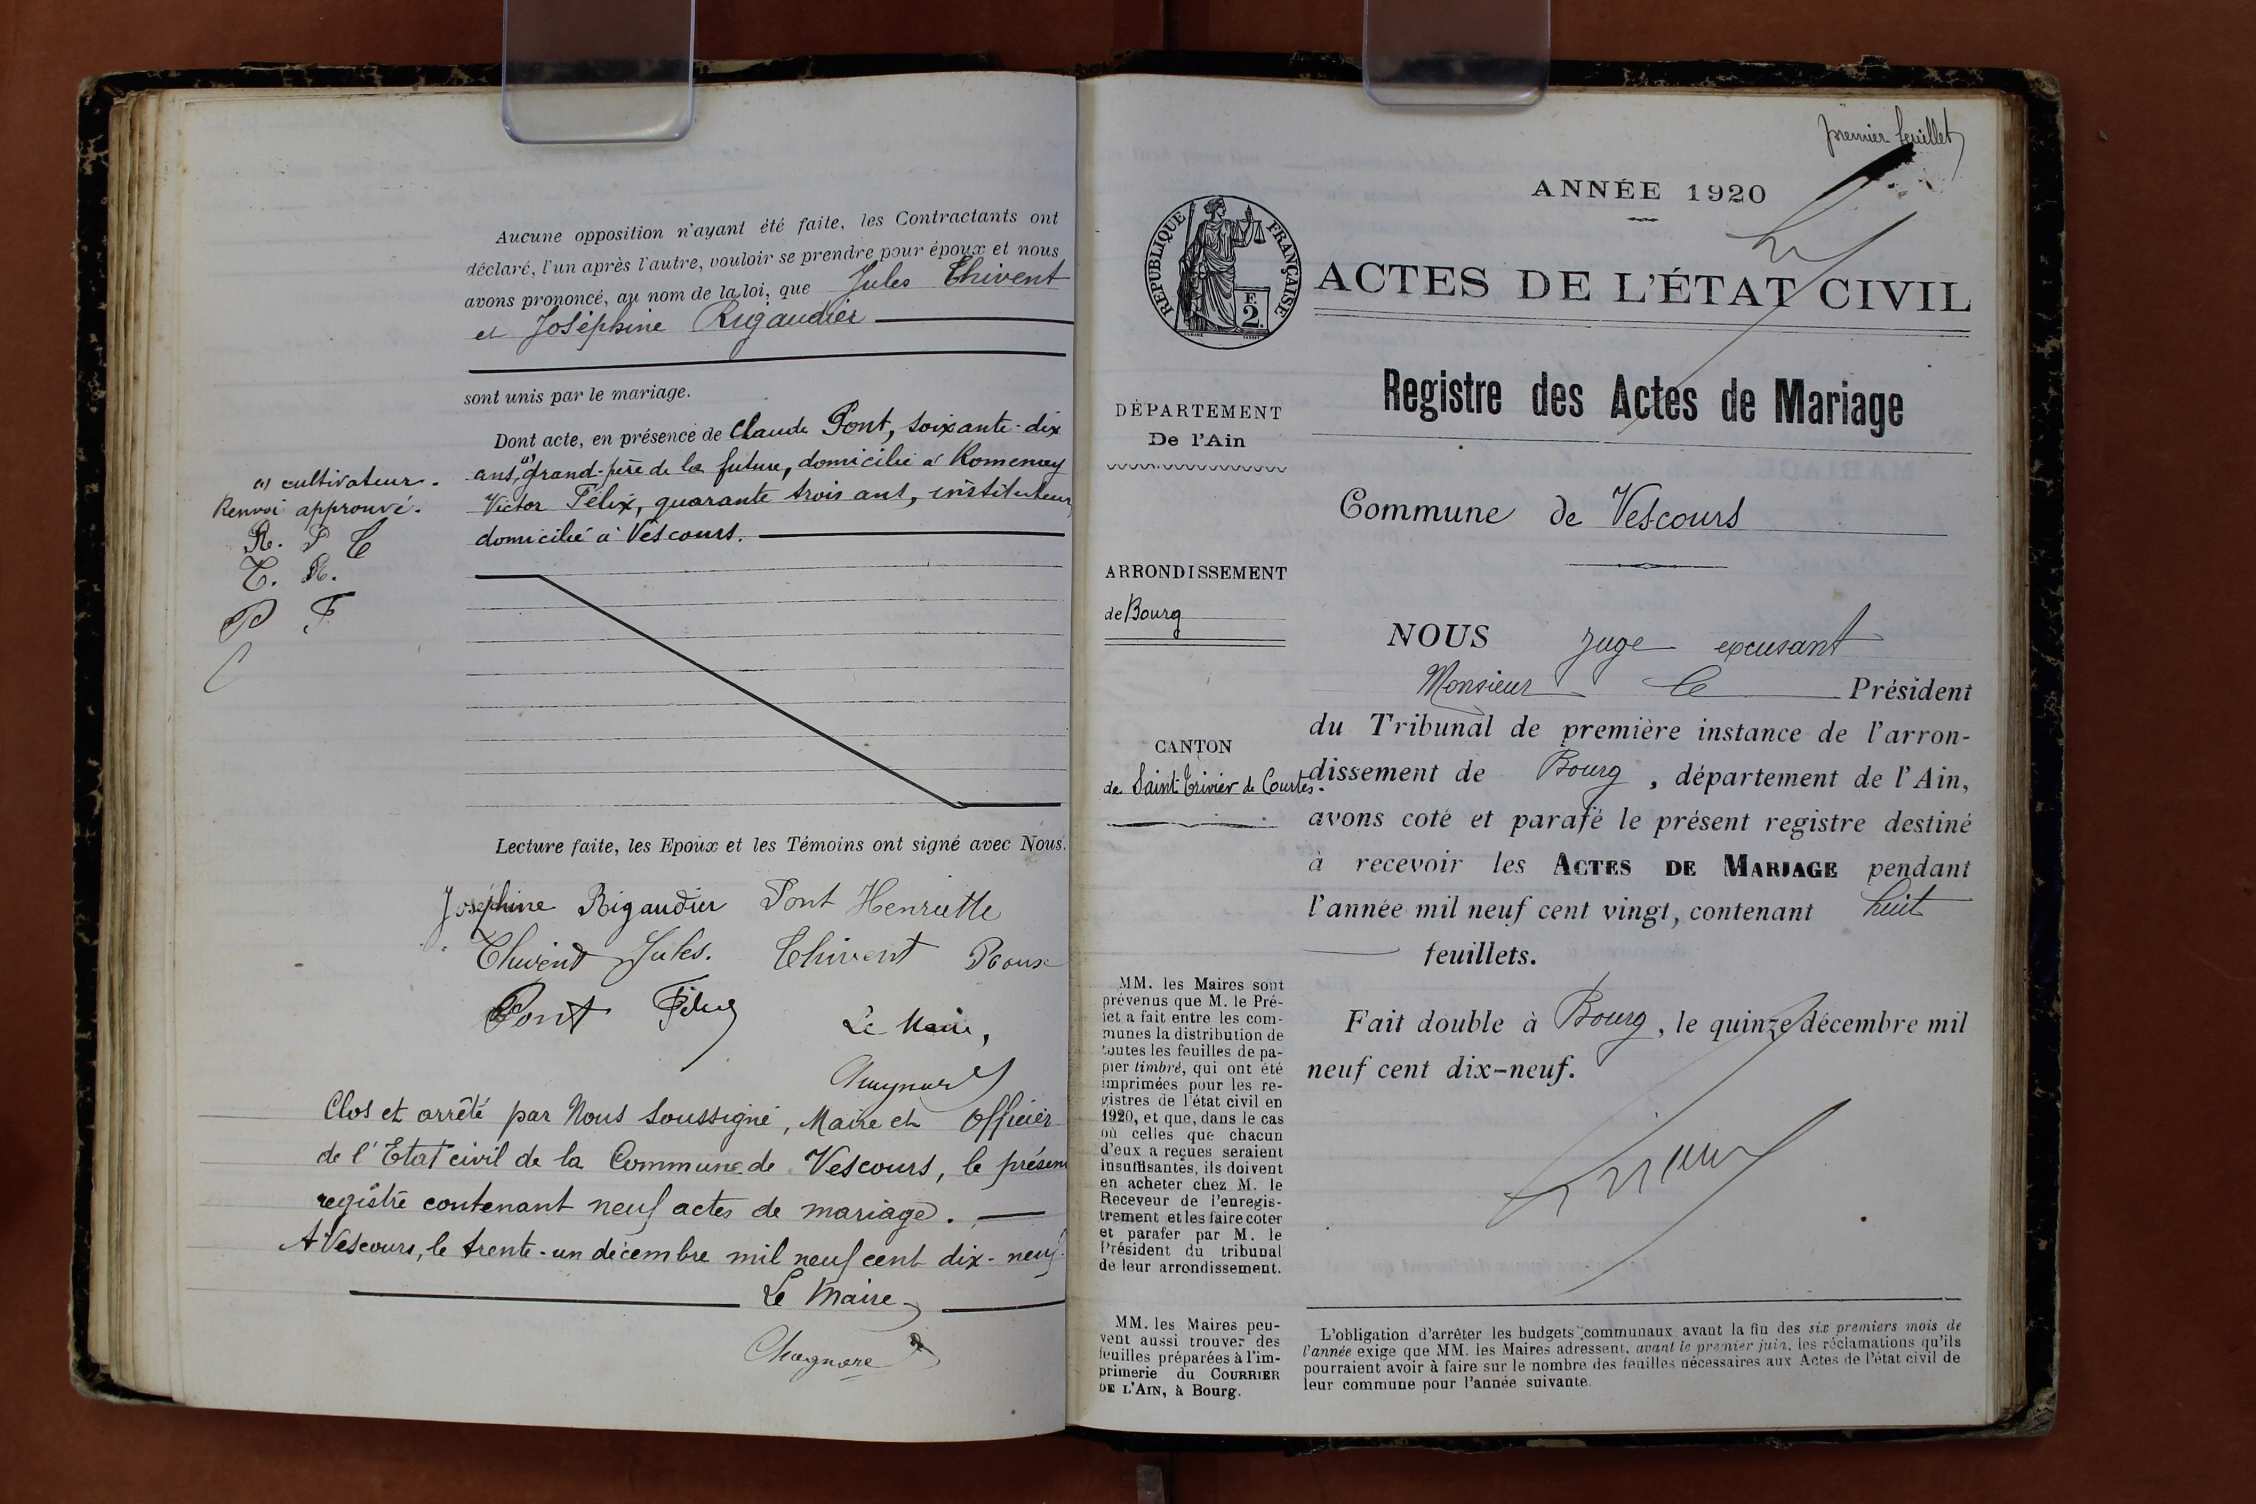 Aucune opposition n'ayant été faite, les Contractants ont
déclaré, l'un après l'autre, vouloir se prendre pour époux et nous
avons prononcé, au nom de la loi, que Jules Thivent
et Joséphine Rigaudier
sont unis par le mariage.
Dont acte, en présence de Claude Pont, soixante-dix
ans, (1) grand-père de la future, domicilié à Romenay
Victor Félix, quarante trois ans, instituteur,
domicilié à Vescours.
(1) cultivateur.
Renvoi approuvé.
R. P T
T. R.
P F
Lecture faite, les Epoux et les Témoins ont signé avec Nous.
Joséphine Rigaudier Pont Henriette
Thivent Jules. Thivent Roux
Pont Félix
Le Maire,
Clos et arrêté par Nous soussigné, Maire et Officier
de l'Etat civil de la Commune de Vescours, le présent
registre contenant neuf actes de mariage.
A Vescours, le trente-un décembre mil neuf cent dix-neuf.
Le Maire
premier feuillet
ANNÉE 1920
RÉPUBLIQUE FRANÇAISE
F.
2.
ACTES DE L'ÉTAT CIVIL
Registre des Actes de Mariage
DÉPARTEMENT
De l'Ain
Commune de Vescours
ARRONDISSEMENT
de Bourg
CANTON
de Saint-Trivier de Courtes.
NOUS juge excusant
Monsieur le Président
du Tribunal de première instance de l'arron-
dissement de Bourg, département de l'Ain,
avons coté et parafé le présent registre destiné
à recevoir les ACTES DE MARIAGE pendant
l'année mil neuf cent vingt, contenant huit
feuillets.
Fait double à Bourg, le quinze décembre mil
neuf cent dix-neuf.
MM. les Maires sont
prévenus que M. le Pré-
fet a fait entre les com-
munes la distribution de
toutes les feuilles de pa-
pier timbré, qui ont été
imprimées pour les re-
gistres de l'état civil en
1920, et que, dans le cas
où celles que chacun
d'eux a reçues seraient
insuffisantes, ils doivent
en acheter chez M. le
Receveur de l'enregis-
trement et les faire coter
et parafer par M. le
Président du tribunal
de leur arrondissement.
MM. les Maires peu-
vent aussi trouver des
feuilles préparées à l'im-
primerie du COURRIER
DE L'AIN, à Bourg.
L'obligation d'arrêter les budgets communaux avant la fin des six premiers mois de
l'année exige que MM. les Maires adressent, avant le premier juin, les réclamations qu'ils
pourraient avoir à faire sur le nombre des feuilles nécessaires aux Actes de l'état civil de
leur commune pour l'année suivante.